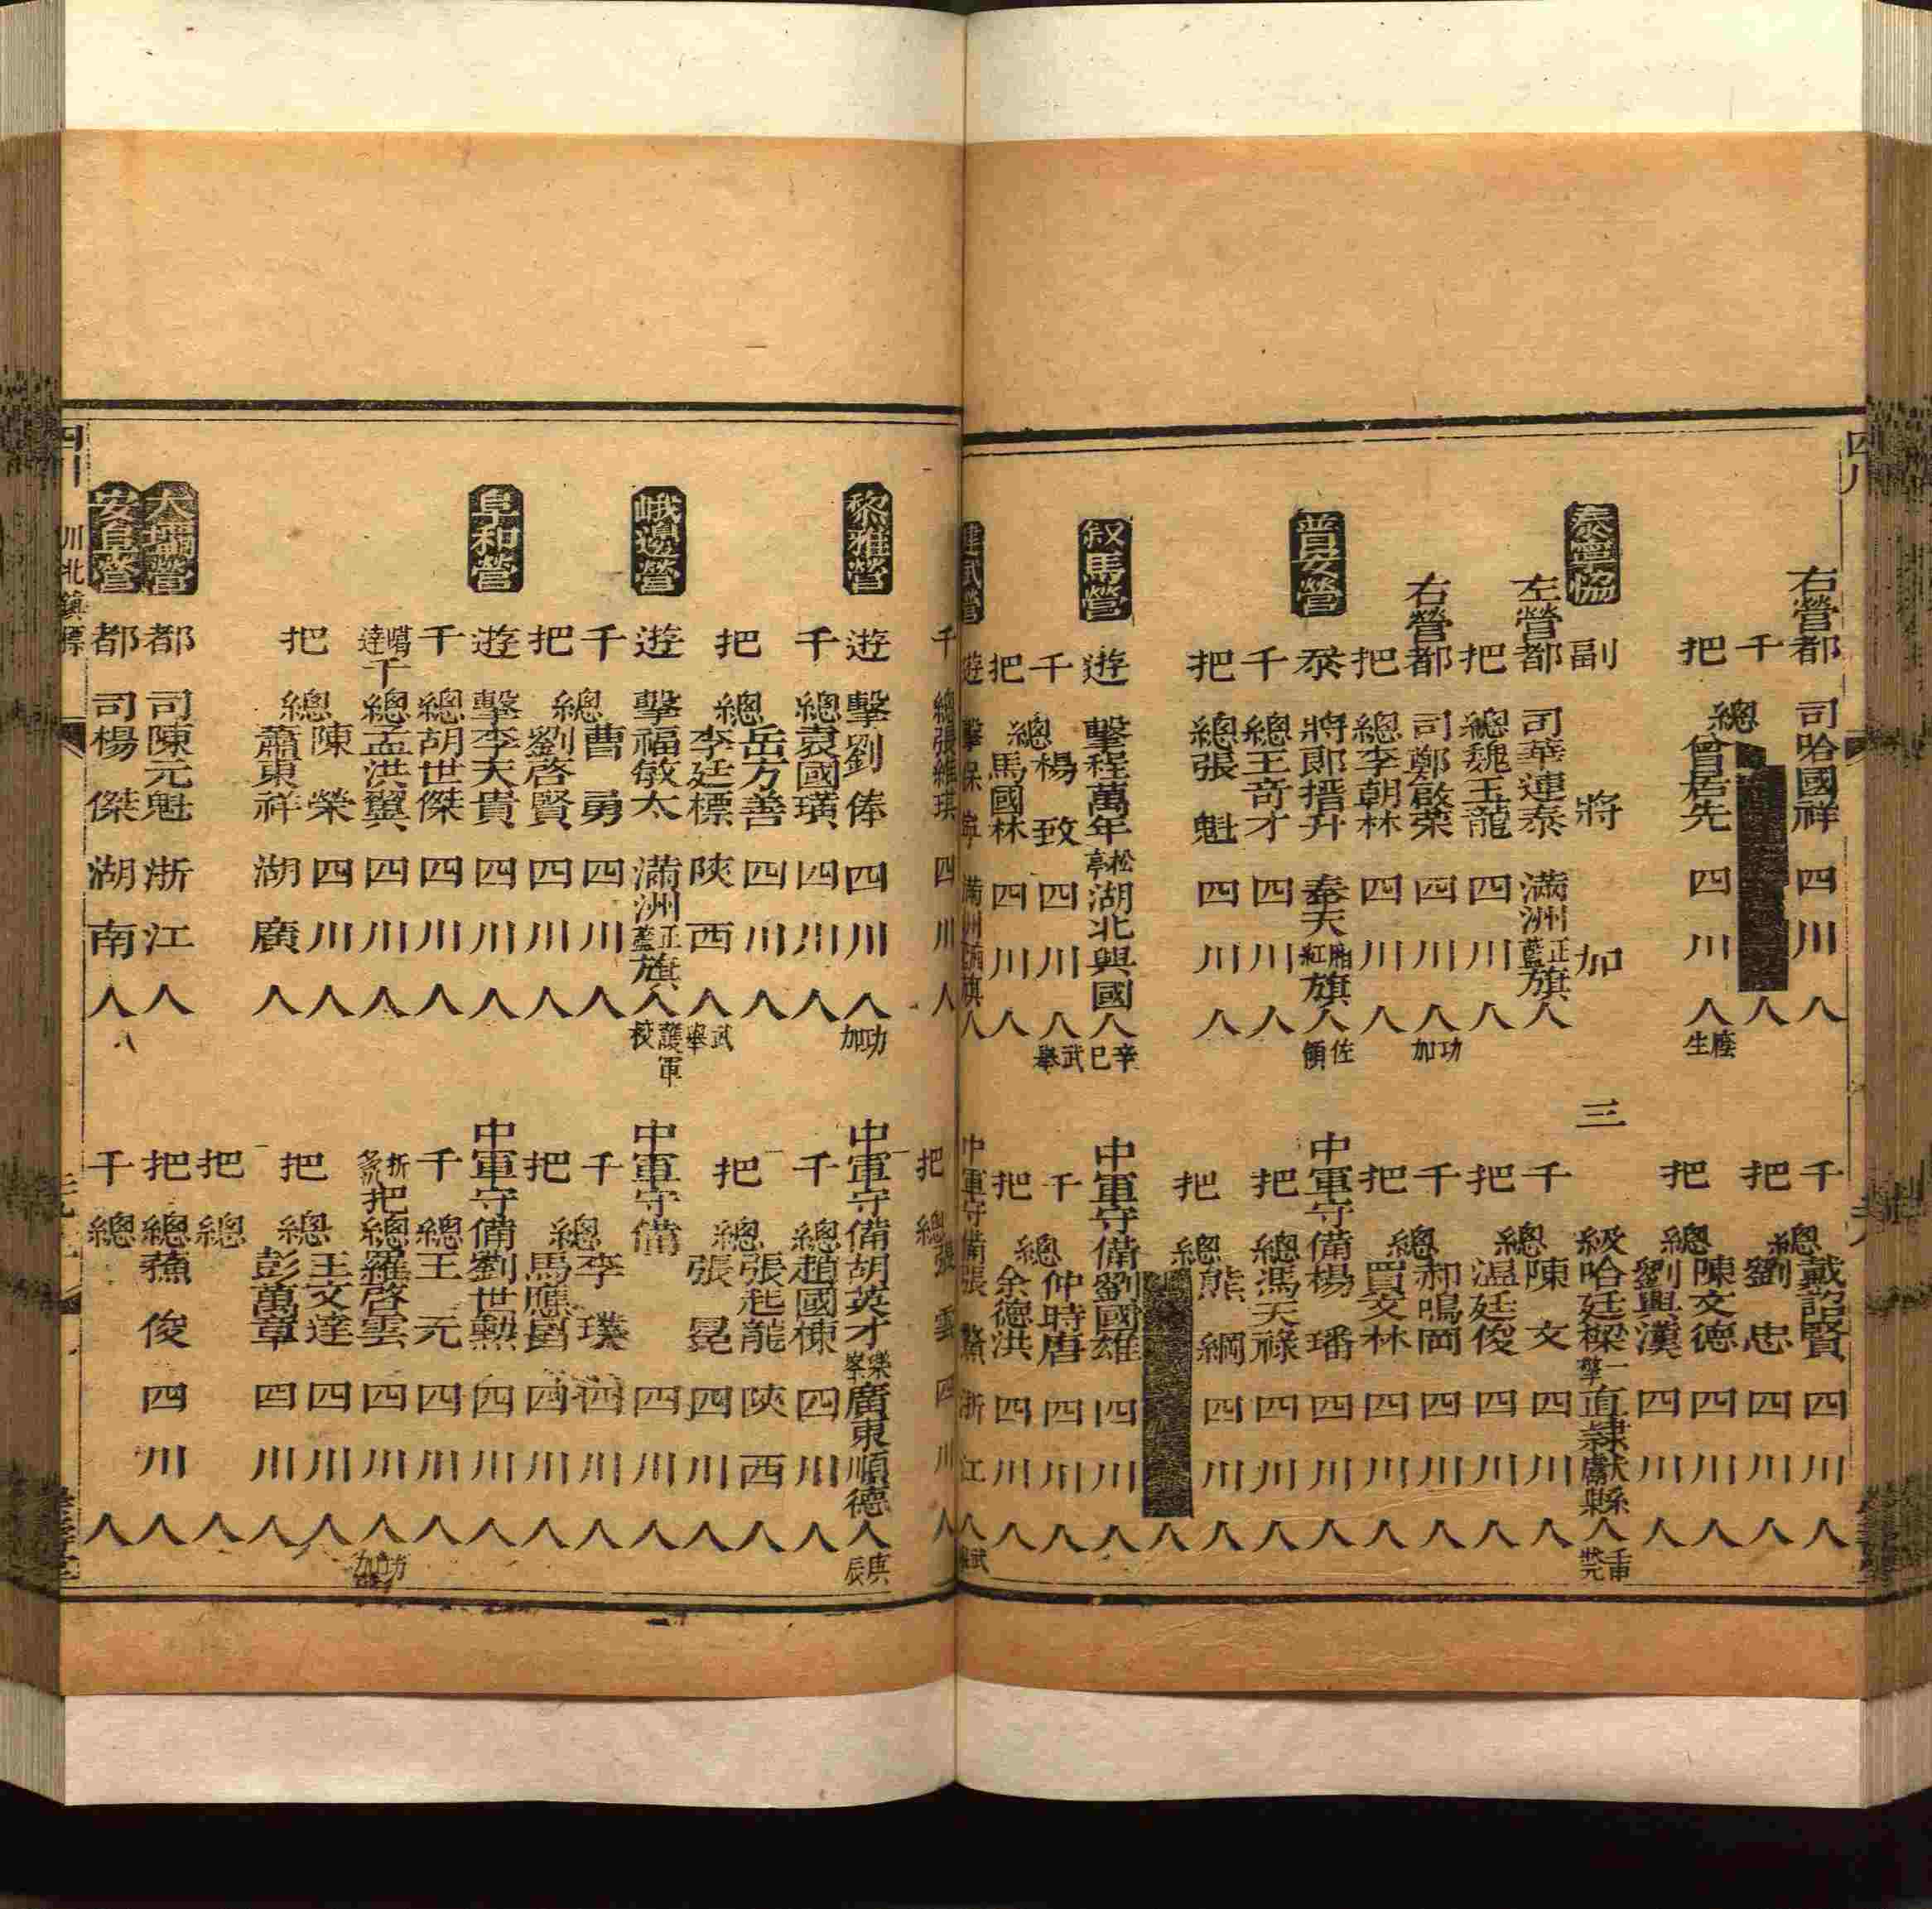 右營都司哈國祥四川人
千總戴詔賢四川人
千人
把總劉忠四川人
把總曾居先四川人廕生
把總陳文德四川人
劉興漢四川人
泰寧協
副將加三級哈廷樑直隸獻縣人
左營都司華連泰滿洲正藍旗人
千總陳文四川人
把總魏玉龍四川人
把總溫廷俊四川人
右營都司鄭啟荣四川人功加
千總郝鳴岡四川人
把總李朝林四川人
把總賈文林四川人
普安營
叅將郎搢升奉天廂紅旗人佐領
中軍守備楊璠四川人
千總王奇才四川人
把總馮天祿四川人
把總張魁四川人
把總熊綱四川人
人
敘馬營
遊擊程萬年松亭湖北興國人辛巳
中軍守備劉國雄四川人
千總楊致四川人武舉
千總仲時唐四川人
把總馬國林四川人
把總余德洪四川人
建武營
遊擊保寧滿州旗人
中軍守備張浙江人武
千總張維琪四川人
把總張雲四川人
黎雅營
遊擊劉俸四川人功加
中軍守備胡英才樂峯廣東順德人庚辰
千總袁國璜四川人
千總趙國棟四川人
把總岳方善四川人
把總張起龍陝西人
李廷標陝西人武舉
張晃四川人
峨邊營
遊擊福敏太滿洲正藍旗人護軍校
中軍守備四川人
千總曹勇四川人
千總李璞四川人
把總劉啓賢四川人
把總馬應品四川人
阜和營
遊擊李天貴四川人
中軍守備劉世勲四川人
千總胡世傑四川人
千總王元四川人
噶達千總孟洪翼四川人
折多把總羅啓雲四川人功加
把總陳榮四川人
把總王文達四川人
蕭東祥湖廣人
彭萬章四川人
把總人
大壩營
都司陳元魁浙江人
把總蘓俊四川人
安阜營
都司楊傑湖南人
千總人
四川 川北鎮標